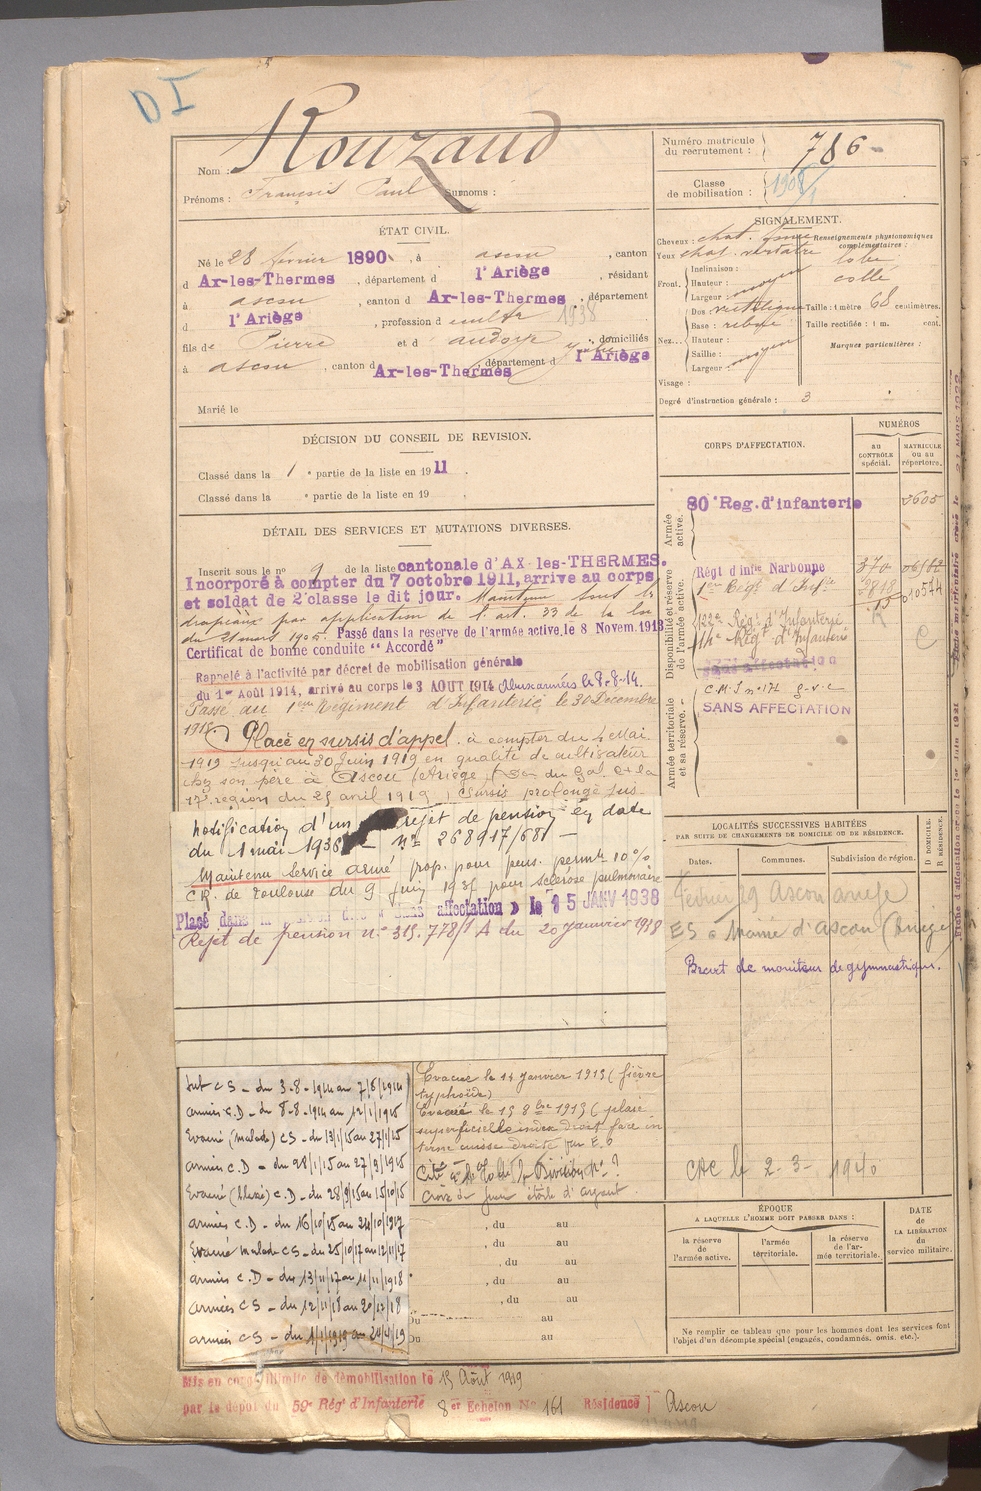 DI
Nom : Rouzaud
Prénoms : François Paul Surnoms :
Numéro matricule du recrutement : 786
Classe de mobilisation : 1908
ÉTAT CIVIL.
Né le 28 février 1890, à ascou, canton
d Ax-les-Thermes, département d l'Ariège, résidant
à ascou, canton d Ax-les-Thermes, département
d l'Ariège, profession d cultr 1938
fils de Pierre et d , domiciliés
à ascou, canton d Ax-les-Thermes, département d l'Ariège
Marié le
SIGNALEMENT.
Cheveux : chat.
Yeux chat. verdatre
Renseignements physionomiques complémentaires :
lobe
collé
Front. Inclinaison :
Hauteur :
Largeur : moyen
Nez... Dos : rectiligne
Base :
Hauteur :
Saillie :
Largeur : moyen
Taille : 1 mètre 68 centimètres.
Taille rectifiée : 1 m. cent.
Marques particulières :
Visage :
Degré d'instruction générale : 3
DÉCISION DU CONSEIL DE REVISION.
Classé dans la 1 e partie de la liste en 1911
Classé dans la e partie de la liste en 19
DÉTAIL DES SERVICES ET MUTATIONS DIVERSES.
Inscrit sous le no 9 de la liste cantonale d'AX-les-THERMES.
Incorporé à compter du 7 octobre 1911, arrivé au corps
et soldat de 2e classe le dit jour. Maintenu sous les
drapeaux par application de l'art. 33 de la loi
du 21 mars 1905. Passé dans la réserve de l'armée active, le 8 Novem. 1913
Certificat de bonne conduite "Accordé"
Rappelé à l'activité par décret de mobilisation générale
du 1er Août 1914, arrivé au corps le 3 AOUT 1914 Aux armées le 8-8-14
Passé au 1er Régiment d'Infanterie le 30 Décembre
1915. Placé en sursis d'appel à compter du 4 Mai
1919 jusqu'au 30 Juin 1919 en qualité de cultivateur
chez son père à Ascou (Ariège) du Gal Ct la
17e région du 25 avril 1919) Sursis prolongé jus-
notification d'un rejet de pension en date
du 1 mai 1936 No 268917/681 -
Maintenu Service armé prop. pour pens. permte 10 %
C.R. de Toulouse du 9 juin 1936 pour sclérose pulmonaire
Placé dans la affectation » le 15 JANV 1938
Rejet de pension no 315.778/1 A du 20 Janvier 1938
CORPS D'AFFECTATION.
NUMÉROS
AU CONTRÔLE spécial.
MATRICULE OU AU répertoire.
Armée active.
80e Reg. d'infanterie
Disponibilité et réserve de l'armée active.
Régt d'infie Narbonne 370
1er Régt d'Infie 010574
122e Régt d'Infanterie
14e Régt d'Infanterie C
sans affectation
Armée territoriale et sa réserve.
C.M.I no 171 g-v-c
SANS AFFECTATION
LOCALITÉS SUCCESSIVES HABITÉES
PAR SUITE DE CHANGEMENTS DE DOMICILE OU DE RÉSIDENCE.
Dates. Communes. Subdivision de région. D DOMICILE. R RÉSIDENCE.
Février 29 Ascou ariege
ES Mairie d'ascou (Ariege)
Brevet de moniteur de gymnastique.
CAC le 2-3-1940
Int C S - du 3-8-1914 au 7/8/1914
armées C.D - du 8-8-1914 au 12/1/1915
Evacué (malade) C S - du 13/1/15 au 27/1/15
armées C.D - du 28/1/15 au 27/9/1915
Evacué (blessé) C.D - du 28/9/15 au 15/10/15
armées C.D - du 16/10/15 au 24/10/1917
Evacué malade C S - du 25/10/17 au 12/11/17
armées C.D - du 13/11/17 au 11/11/1918
armées C S - du 12/11/18 au
armées C S - du 1/1/1919 au 24/4/19
Evacué le 14 Janvier 1915 (fièvre
typhoïde)
Evacué le 15 8bre 1915 (plaie
superficielle index droit face in
terne cuisse droite par E.O
Cité à
Croix de guerre étoile d'argent
, du au
, du au
, du au
, du au
, du au
Du au
Du au
ÉPOQUE
A LAQUELLE L'HOMME DOIT PASSER DANS :
la réserve de l'armée active.
l'armée territoriale.
la réserve de l'armée territoriale.
DATE de LA LIBÉRATION du service militaire.
Ne remplir ce tableau que pour les hommes dont les services font
l'objet d'un décompte spécial (engagés, condamnés, omis, etc.).
Mis en congé illimité de démobilisation le 15 Août 1919
par le dépôt du 59e Régt d'Infanterie 8 er Echelon No 161 Résidence Ascou